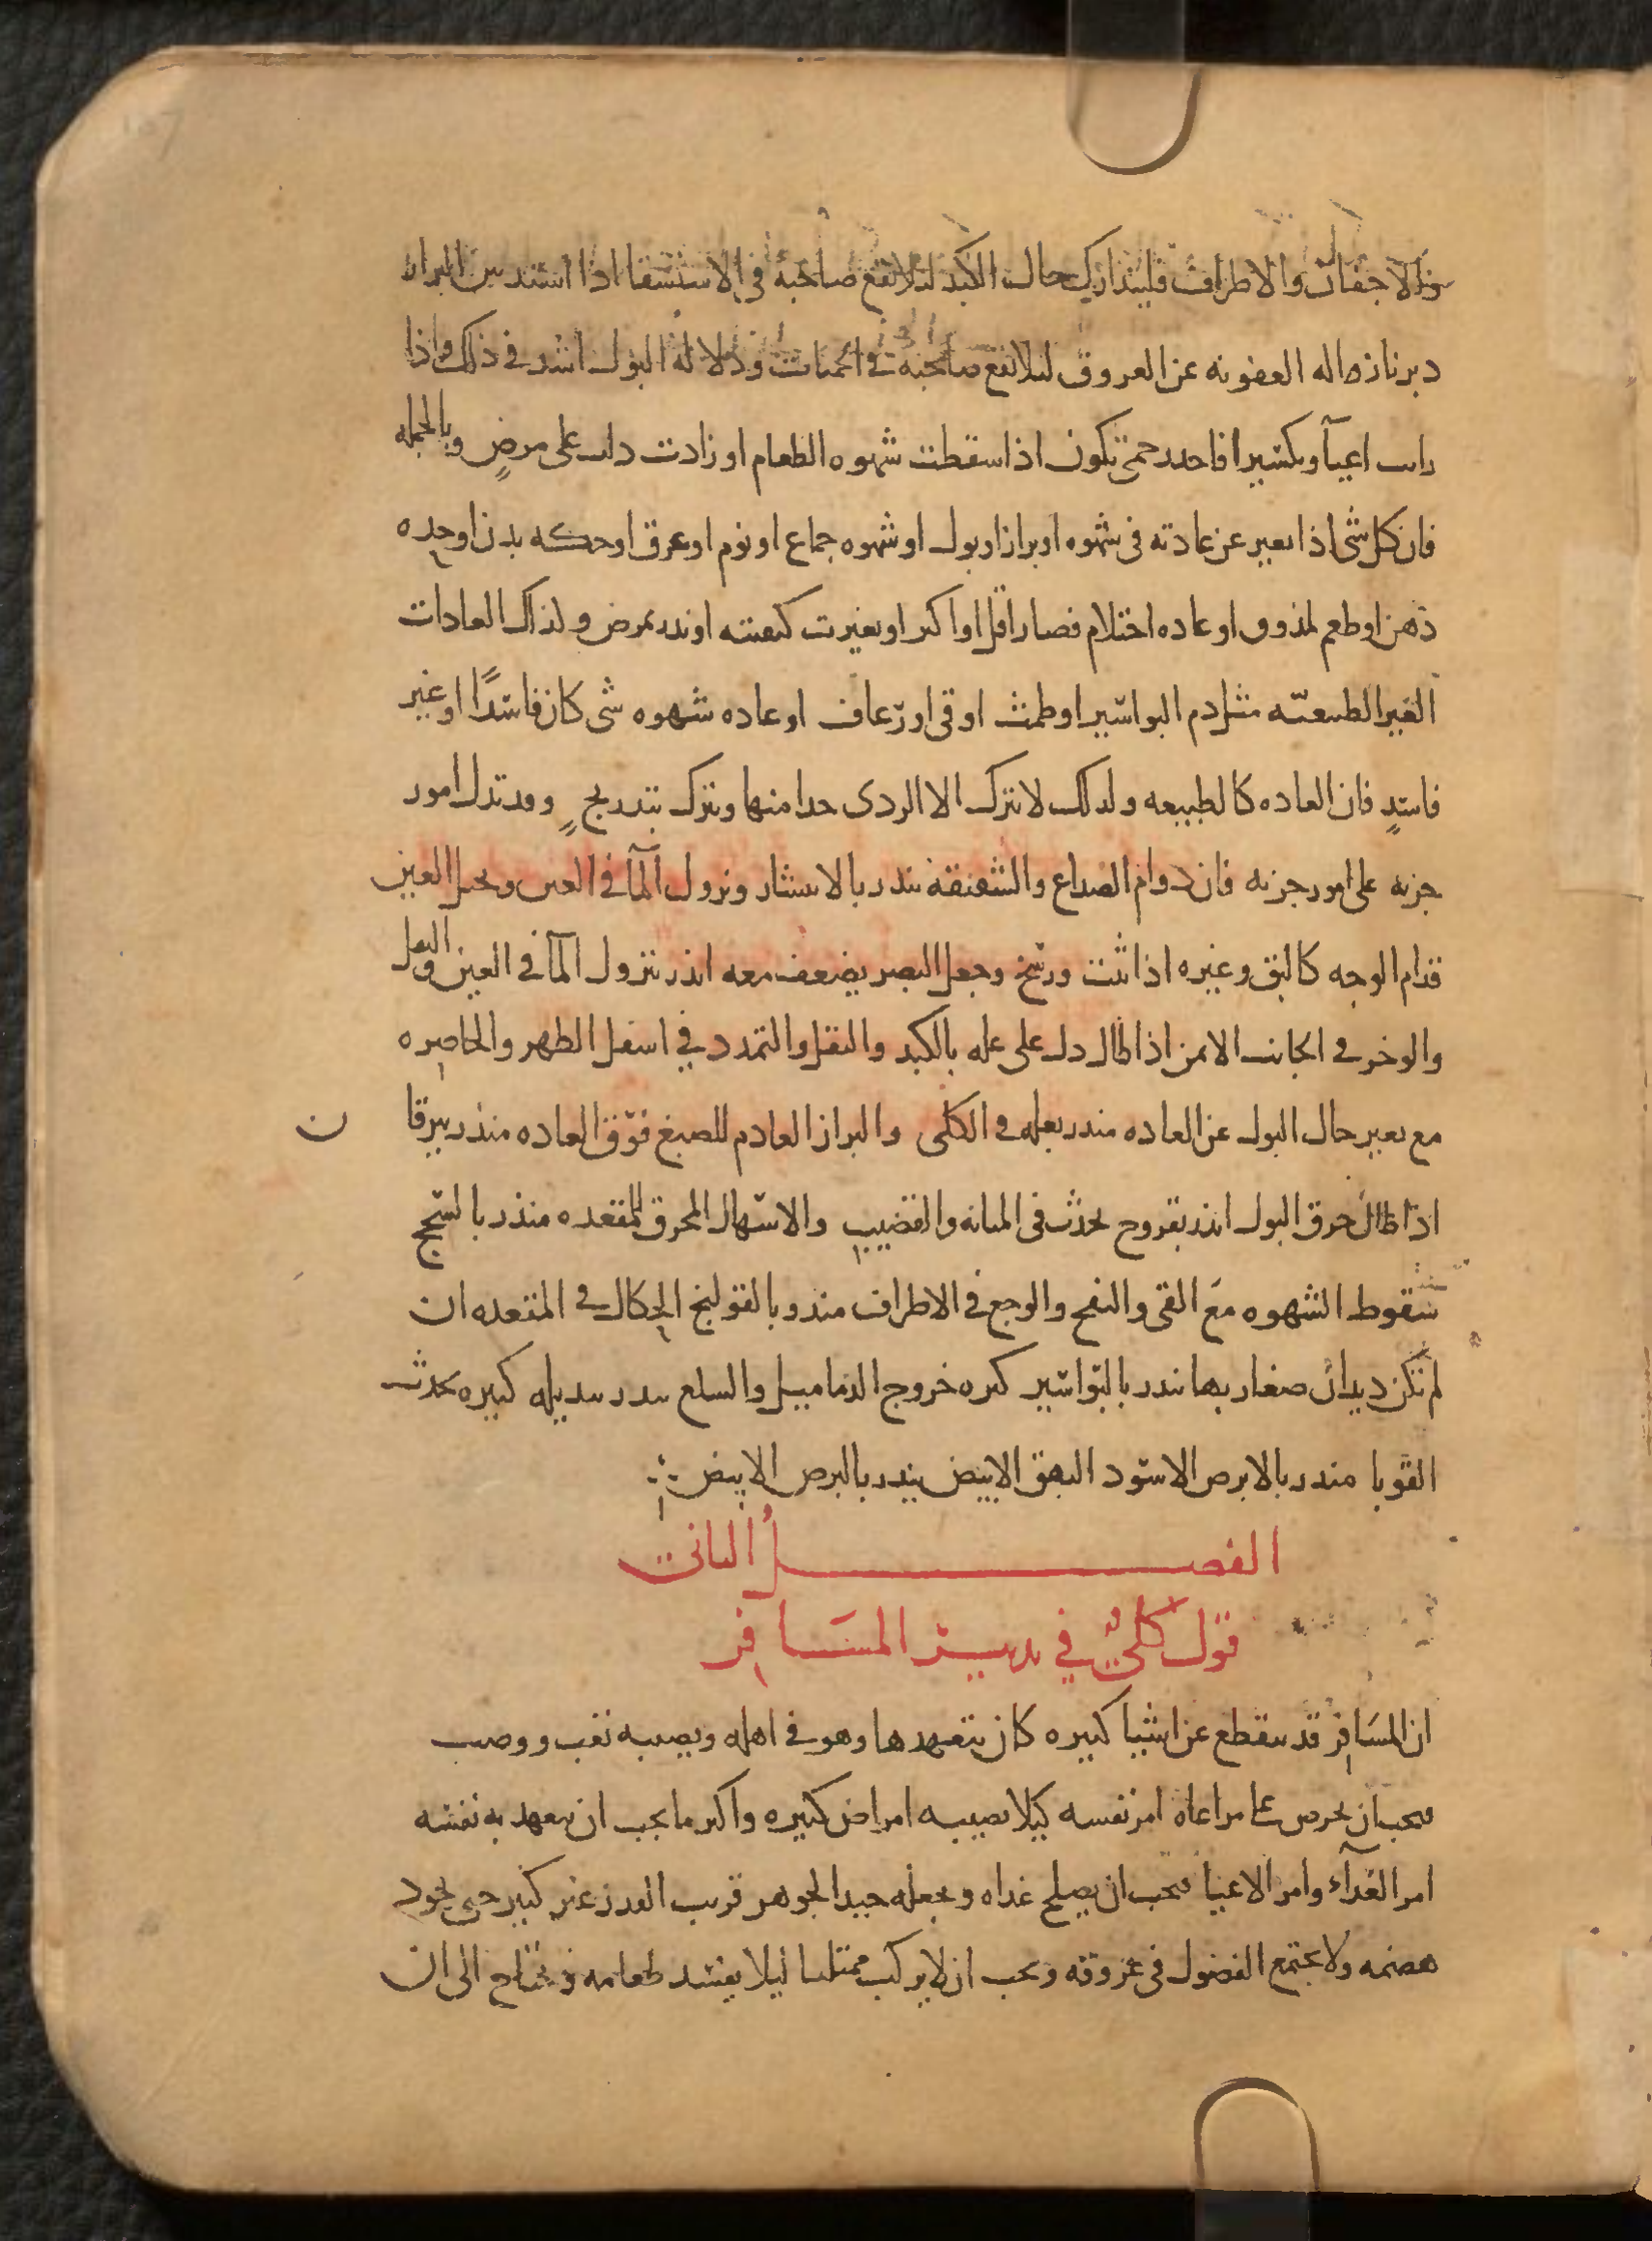 والاجفان والاطراف فليتدارك حال الكبد ليلا تقع صاحبه في الاستسقا اذا اشتد نتن البراز
دبرنا زاله العفونه عن العروق ليلا تقع صاحبه في الحميات ودلاله البول اشد في ذلك واذا
رايت اعيآ وتكسيرا فاحدد حمى تكون اذا سقطت شهوه الطعام او زادت دلت على مرضٍ وبالجمله
فان كل شى اذا تغير عن عادته فى شهوه او براز او بول او شهوه جماع او نوم او عرق او حكه بدن او حده
ذهن او طعم لمذوق او عاده احتلام فصار اقل او اكثر او تغيرت كيفيته انذر بمرض ولذلك العادات
الغير الطبيعيّه مثل دم البواسير او طمث او قى او رعاف او عاده شهوه شى كان فاسدًا او غير
فاسدٍ فان العاده كالطبيعه ولذلك لا تترك الا الردى جدا منها وتترك بتدريجٍ وقد تدل امور
جزيه على امور جزيه فان دوام الصداع والشقيقه تنذر بالانتشار ونزول المآ في العين وتخيل العين
قدام الوجه كالبق وغيره اذا ثبت ورسخ وجعل البصر يضعف معه انذر بنزول المآ في العين والثقل
والوخز في الجانب الايمن اذا طال دل على عله بالكبد والثقل والتمدد في اسفل الظهر والخاصره
مع تغير حال البول عن العاده منذر بعله في الكلى والبراز العادم للصبغ فوق العاده منذر بيرقان
اذا طال حرق البول انذر بقروح تحدث فى المثانه والقضيب والاسهال المحرق للمقعده منذر بالسحج
سقوط الشهوه مع القى والنفخ والوجع في الاطراف منذر بالقولنج الحكاك في المقعده ان
لم تكن ديدان صغار بها تنذر بالبواسير كثره خروج الدماميل والسلع تنذر بدبيله كبيره تحدث
القوبا منذر بالابرص الاسود البهق الابيض ينذر بالبرص الابيض
الفصل الثانى
قول كلىٌ في تدبير المسافر
ان المسافر قد ينقطع عن اشيا كثيره كان يتعهدها وهو في اهله ويصيبه تعب ووصب
فيجب ان يحرص على مراعاه امر نفسه كيلا تصيبه امراض كثيره واكثر ما يجب ان يتعهد به نفسه
امر الغدآء وامر الاعيا فيجب ان يصلح غداه ويجعله جيد الجوهر قريب القدر غير كثير حتى يجود
هضمه ولا يجتمع الفضول فى عروقه ويجب ان لا يركب ممتليا ليلا يفسد طعامه ويحتاج الى ان